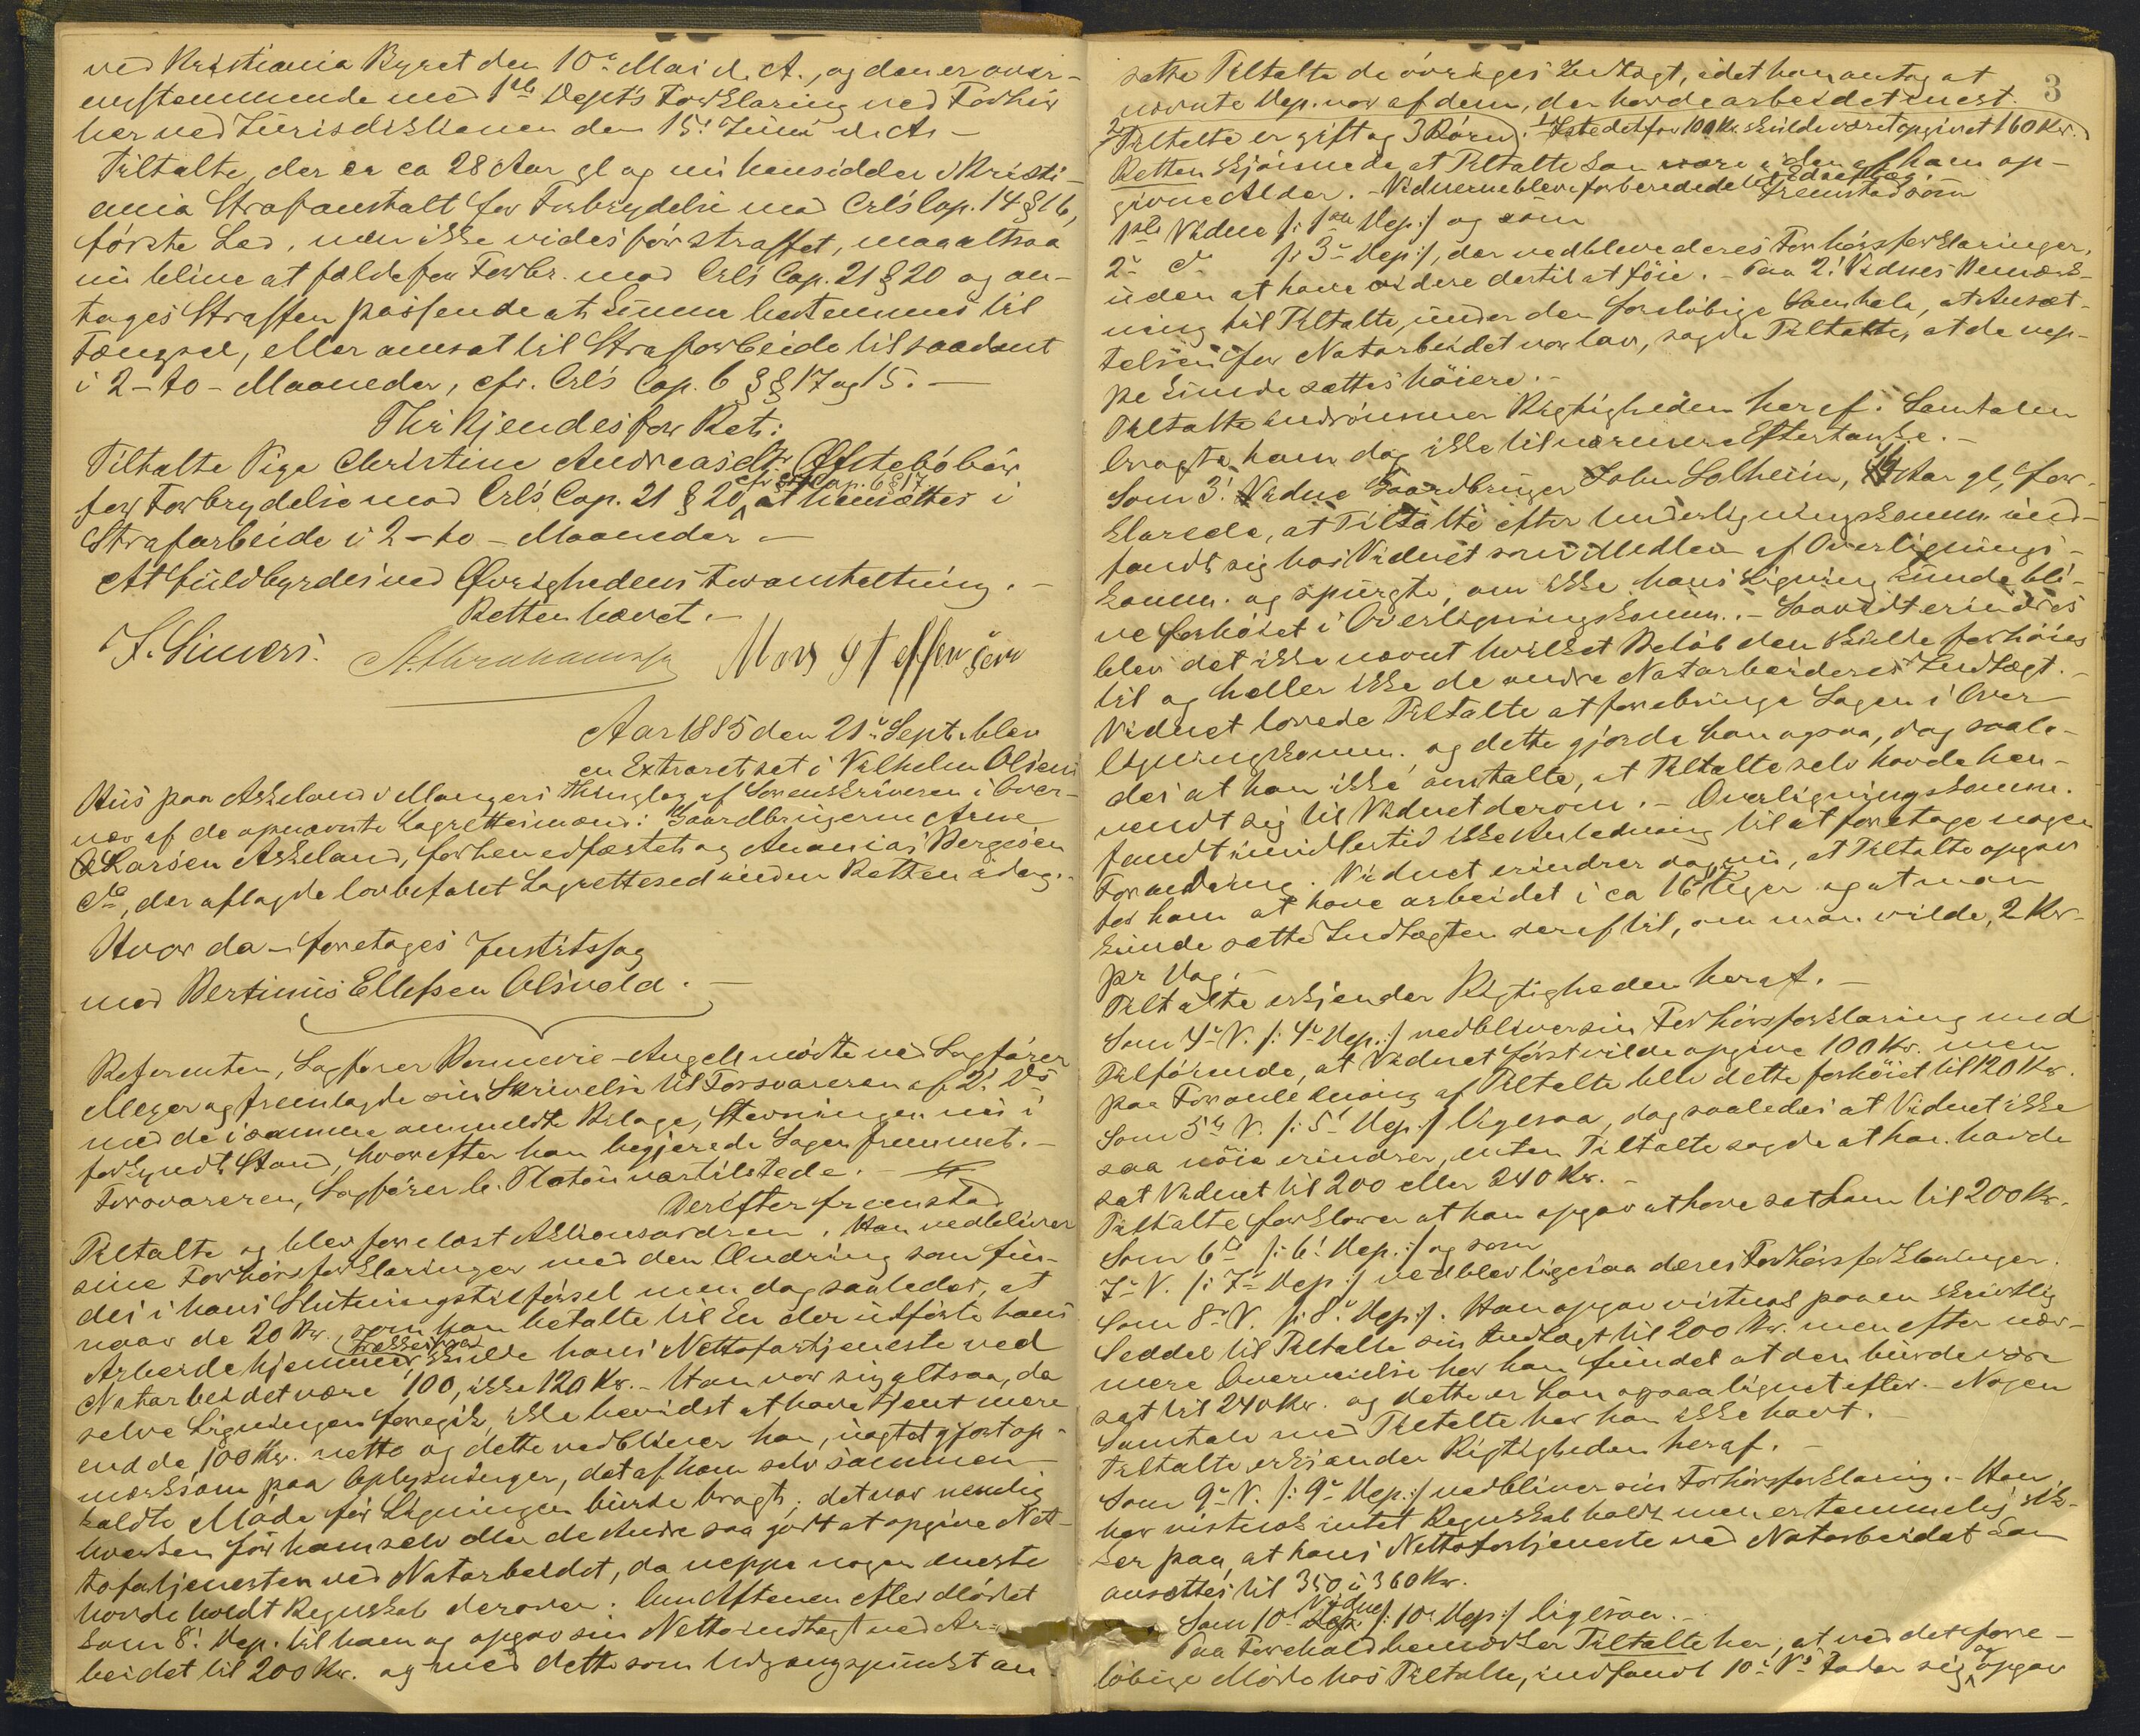 ved Kristiania Byret den 10de Mai d. A., og den er over-
ensstemmende med 1ste Dept's Forklaring ved Forhør
her ved Jurisdiktionen den 15de Juni d. A. -
Tiltalte, der er ca 28 Aar gl og nu hensidder i Kristi-
ania Strafanstalt for Forbrydelse mod Crl's Cap. 14 § 16,
første Led, men ikke vides før straffet, maa altsaa
nu blive at fælde for Forbr. mod Crl's Cap. 21 § 20 og an-
tages Straffen passende at kunne bestemmes til
Fængsel, eller omsat til Strafarbeide til saadant
i 2 - to - Maaneder, cfr. Crl's Cap. 6 §§ 17 og 15. -
Thi kjendes for Ret:
Tiltalte Pige Christine Andreasdtr Østebø bør
for Forbrydelse mod Crl's Cap. 21 § 20, cfr Cap. 6 § 17 at hensættes i
Strafarbeide i 2 - to - Maaneder. -
At fuldbyrdes ved Øvrighedens Foranstaltning. -
Retten hævet. -
J. Simers. A. Abrahamsen Mons Steffensen
Aar 1885 den 21de Sept. blev
en Extraret sat i Vilhelm Olsens
Hus paa Askeland i Mangers Thinglag af Sorenskriveren i Over-
vær af de opnævnte Lagrettesmænd: Gaardbrugerne Arne
Larsen Askeland, forhen edfæstet og Ananias Bergesen
do, der aflagde lovbefalet Lagrettesed inden Retten idag. -
Hvor da - foretages Justitssag
mod Bertinius Ellefsen Alsvold. -
Referenten, Sagfører Bonnevie-Angell mødte ved Sagfører
Meyer og fremlagde sin Skrivelse til Forsvareren af 2' Ds
med de i samme anmeldte Bilage, Stevningen nu i
forkyndt Stand, hvorefter han begjærede Sagen fremmet. -
Forsvareren, Sagfører C. Platou var tilstede. -
Derefter fremstod
Tiltalte og blev forelæst Aktionsordren. Han vedbliver
sine Forhørsforklaringer med den Ændring som fin-
des i hans Slutningstilførsel men dog saaledes, at
naar de 20 Kr., som han betalte til En der udførte hans
Arbeide hjemme, trækkes fra skulde hans Nettofortjeneste ved
Notarbeidet være 100, ikke 120 Kr. - Han var sig altsaa, da
selve Ligningen foregik, ikke bevidst at have tjent mere
end de 100 Kr. netto og dette vedbliver han, uagtet gjort op-
mærksom paa Oplysninger, det af ham selv sammen-
kaldte Møde før Ligningen burde bragt; det var nemlig
hverken for ham selv eller de Andre saa godt at opgive Net-
tofortjenesten ved Notarbeidet, da neppe nogen eneste
havde holdt Regnskab derover. Om Aftenen efter Mødet
kom 8' Dep. til ham og opgav sin Nettoindtægt ved Ar-
beidet til 200 Kr. og med dette som Udgangspunkt an-
3
satte Tiltalte de øvriges Indtægt, idet han antog at
nævnte Dep. var af dem, der havde arbeidet mest.
2/ Tiltalte er gift og 3 Børn). 1/ Istedetfor 100 Kr. skulde været opgivet 160 Kr.)
Retten skjønnede at Tiltalte kan være i den af ham op-
givne Alder. - Vidnerne bleve forberedede til Edsaflæg. Fremstod som
1ste Vidne /: 1ste Dep :/ og som
2de do /: 3de Dep :/, der vedbleve deres Forhørsforklaringer,
uden at have videre dertil at føie. - Paa 2' Vidnes Bemærk-
ning til Tiltalte, under den foreløbige Samtale, at Ansæt-
telsen for Notarbeidet var lav, sagde Tiltalte, at de nep-
pe kunde sættes høiere. -
Tiltalte indrømmer Rigtigheden heraf. Samtalen
bragte ham dog ikke til nærmere Eftertanke. -
Som 3' Vidne Gaardbruger John Solheim, Aar gl, for-
klarede, at Tiltalte efter Underligningskomm. ind-
fandt sig hos Vidnet som Medlem af Overlignings-
komm. og spurgte, om ikke hans Ligning kunde bli-
ve forhøiet i Overligningskomm. - Saavidt erindres
blev det ikke nævnt hvilket Beløb den skulde forhøies
til og heller ikke de andre Notarbeideres Indtægt. -
Vidnet lovede Tiltalte at forebringe Sagen i Over-
ligningskomm. og dette gjorde han ogsaa, dog saale-
des at han ikke omtalte, at Tiltalte selv havde hen-
vendt sig til Vidnet derom. - Overligningskomm.
fandt imidlertid ikke Anledning til at foretage nogen
Forandring. Vidnet erindrer dog nu, at Tiltalte opgav
for ham at have arbeidet i ca 16 Uger og at man
kunde sætte Indtægten deraf til, om man vilde, 2 Kr.
pr Dag. -
Tiltalte erkjender Rigtigheden heraf. -
Som 4de V. /: 4de Dep. :/ vedbliver sin Forhørsforklaring med
Tilføiende, at Vidnet først vilde opgive 100 Kr. men
paa Foranledning af Tiltalte blev dette forhøiet til 120 Kr.
Som 5te V. /: 5' Dep. :/ ligesaa, dog saaledes at Vidnet ikke
saa nøie erindrer, enten Tiltalte sagde at han havde
sat Vidnet til 200 eller 240 Kr. -
Tiltalte forklarer at han opgav at have sat ham til 200 Kr.
Som 6te /: 6' Dep. :/ og som
7de V. /: 7de Dep :/ vedblev ligesaa deres Forhørsforklaringer.
Som 8de V. /: 8' Dep :/. Han opgav vistnok paa en skriftlig
Seddel til Tiltalte sin Indtægt til 200 Kr. men efter nær-
mere Overveielse har han fundet at den burde være
sat til 240 Kr. og dette er han ogsaa lignet efter. - Nogen
Samtale med Tiltalte har han ikke havt. -
Tiltalte erkjender Rigtigheden heraf. -
Som 9de V. /: 9de Dep. :/ vedbliver sin Forhørsforklaring. - Han
har vistnok intet Regnskab holdt men er temmelig sik-
ker paa, at hans Nettofortjeneste ved Notarbeidet kan
ansættes til 350 à 360 Kr.
Som 10de Vidne /: 10de Dep :/ ligesaa. -
Paa Forehold bemærker Tiltalte her, at ved det fore-
løbige Møde hos Tiltalte, indfandt 10' Vs Fader sig og opgav